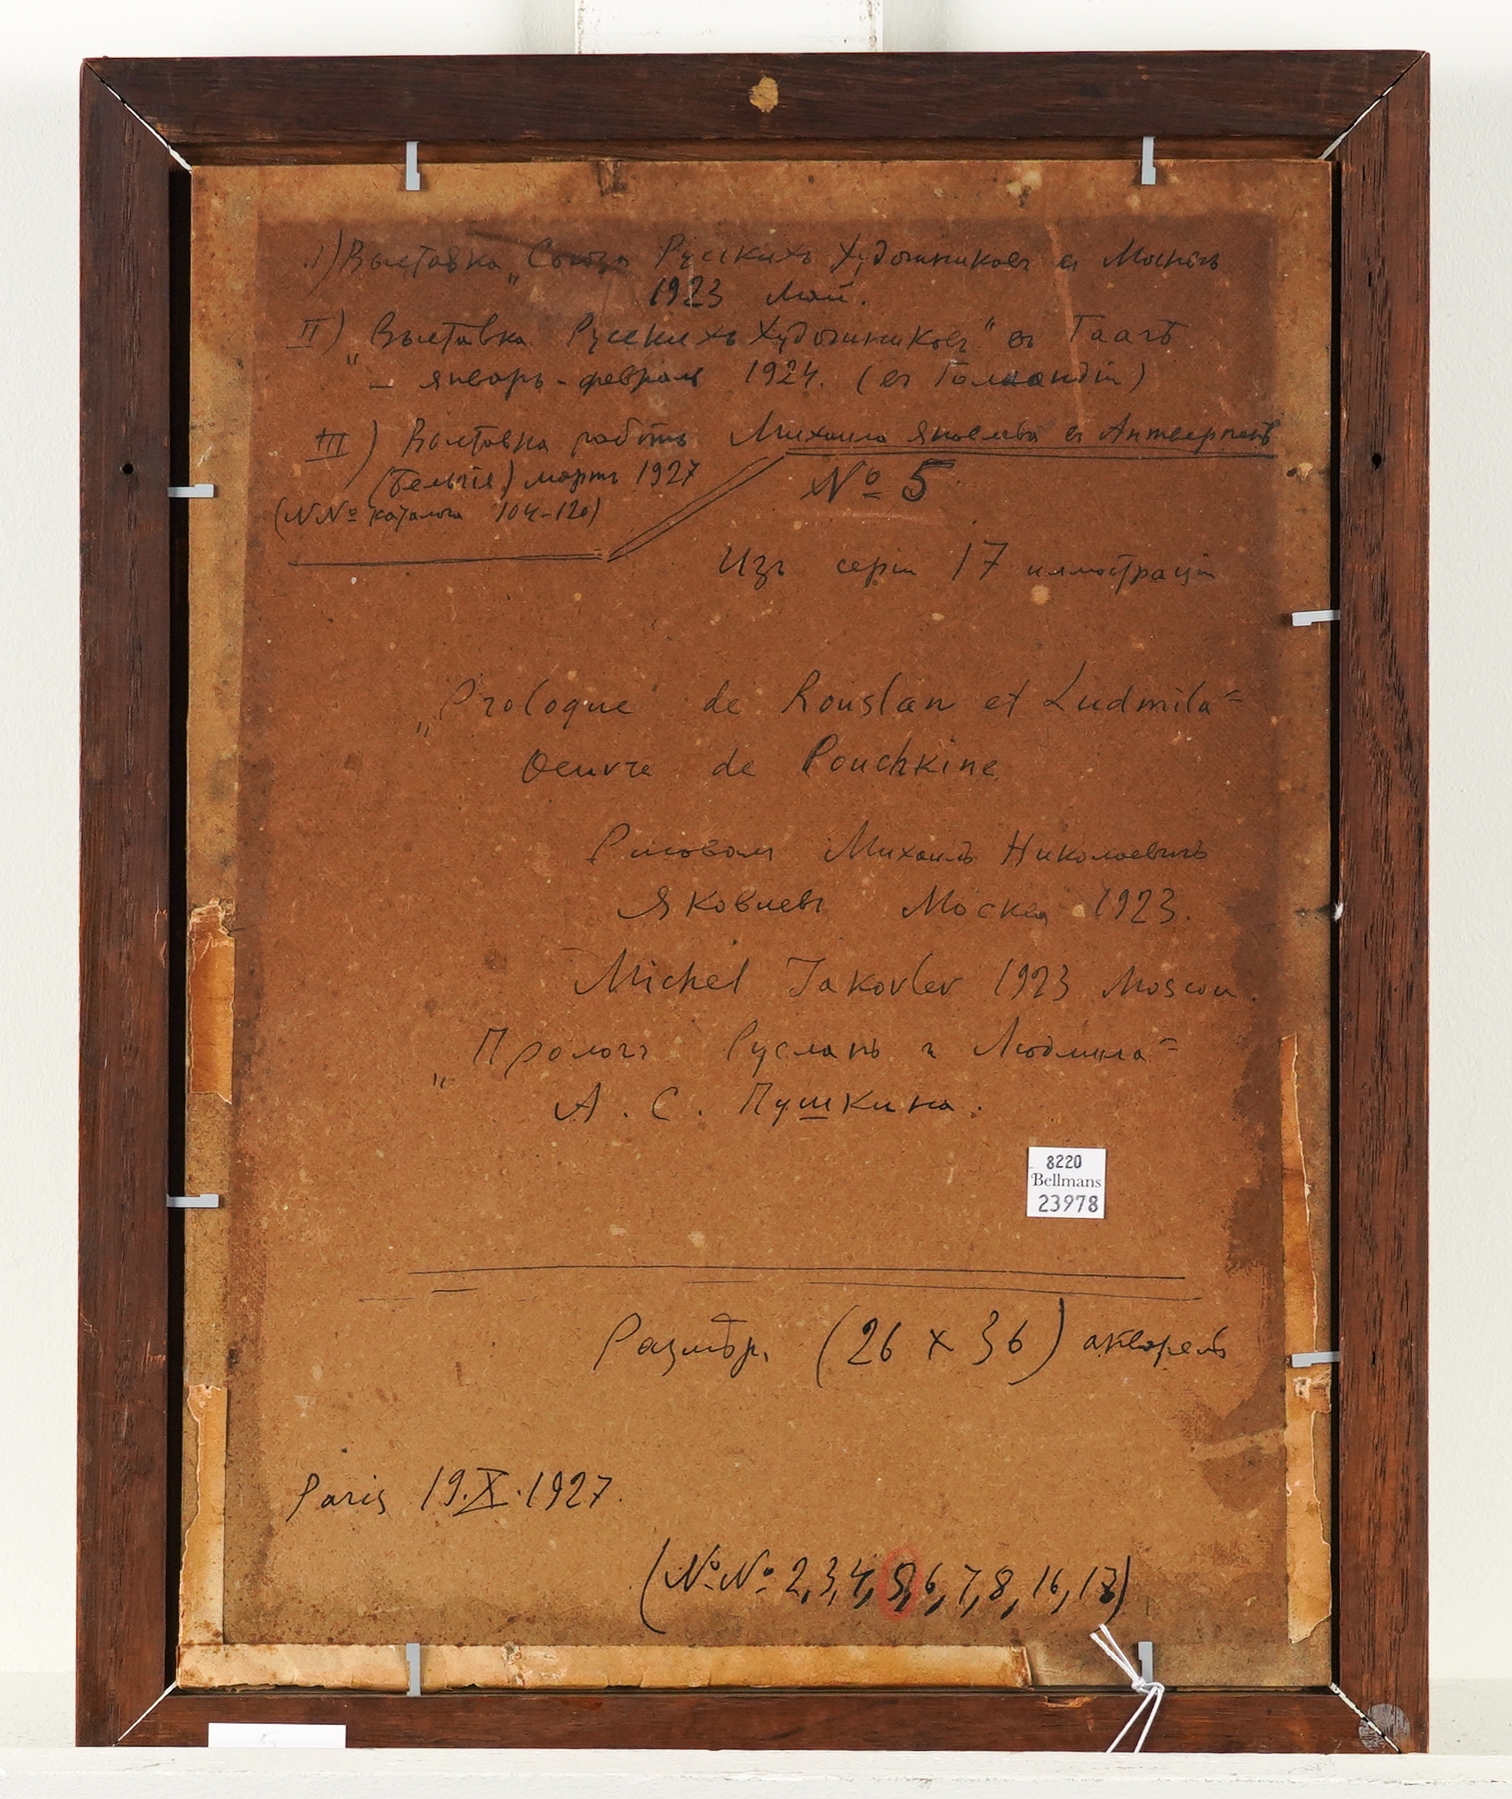 1) Выставка „Союза Русскихъ Художниковъ въ Москвѣ
1923 Май.
II) „Выставка Русскихъ Художниковъ" въ Гаагѣ
— январь - февраль 1924. (въ Голландiи)
III) Выставка работъ Михаила Яковлева въ Антверпенѣ
(Бельгiя) мартъ 1927
№ 5
(N№ каталога 104-120)
Изъ серiи 17 иллюстрацiй
„Prologue de Rouslan et Ludmila"
Oeuvre de Pouchkine
Рисовалъ Михаилъ Николаевичъ
Яковлевъ Москва 1923.
Michel Jakovlev 1923 Moscou.
„Прологъ Русланъ и Людмила"
А. С. Пушкина.
8220
Bellmans
23978
Размѣръ (26 x 36) акварель
Paris 19.X.1927.
(№№ 2,3,4,5,6,7,8,16,17)